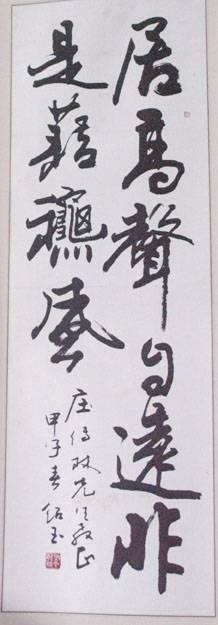 居高聲自遠非
是藉龝風
庄林先生教正
甲子春 玉